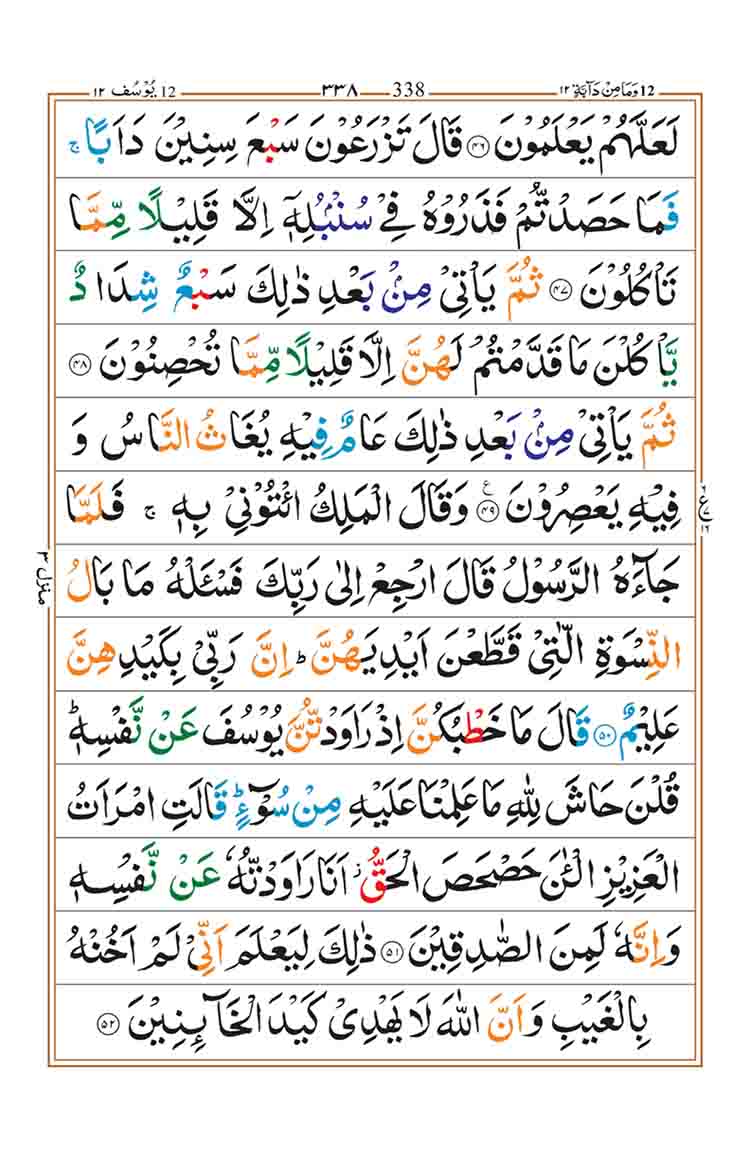 12 وَمَا مِنْ دَآبَّةٍ ١٢ 338 ٣٣٨ 12 يُوْسُف ١٢
لَعَلَّهُمْ يَعْلَمُوْنَ ﴿٤٦﴾ قَالَ تَزْرَعُوْنَ سَبْعَ سِنِيْنَ دَاَبًا ۚ
فَمَا حَصَدْتُّمْ فَذَرُوْهُ فِيْ سُنْۢبُلِهٖۤ اِلَّا قَلِيْلًا مِّمَّا
تَاْكُلُوْنَ ﴿٤٧﴾ ثُمَّ يَاْتِيْ مِنْۢ بَعْدِ ذٰلِكَ سَبْعٌ شِدَادٌ
يَّاْكُلْنَ مَا قَدَّمْتُمْ لَهُنَّ اِلَّا قَلِيْلًا مِّمَّا تُحْصِنُوْنَ ﴿٤٨﴾
ثُمَّ يَاْتِيْ مِنْۢ بَعْدِ ذٰلِكَ عَامٌ فِيْهِ يُغَاثُ النَّاسُ وَ
فِيْهِ يَعْصِرُوْنَ ﴿٤٩﴾ ع وَقَالَ الْمَلِكُ ائْتُوْنِيْ بِهٖ ۚ فَلَمَّا
جَآءَهُ الرَّسُوْلُ قَالَ ارْجِعْ اِلٰى رَبِّكَ فَسْـَٔلْهُ مَا بَالُ
النِّسْوَةِ الّٰتِيْ قَطَّعْنَ اَيْدِيَهُنَّ ؕ اِنَّ رَبِّيْ بِكَيْدِهِنَّ
عَلِيْمٌ ﴿٥٠﴾ قَالَ مَا خَطْبُكُنَّ اِذْ رَاوَدْتُّنَّ يُوْسُفَ عَنْ نَّفْسِهٖ ؕ
قُلْنَ حَاشَ لِلّٰهِ مَا عَلِمْنَا عَلَيْهِ مِنْ سُوْٓءٍ ؕ قَالَتِ امْرَاَتُ
الْعَزِيْزِ الْـٰٔنَ حَصْحَصَ الْحَقُّ ؗ اَنَا رَاوَدْتُّهٗ عَنْ نَّفْسِهٖ
وَاِنَّهٗ لَمِنَ الصّٰدِقِيْنَ ﴿٥١﴾ ذٰلِكَ لِيَعْلَمَ اَنِّيْ لَمْ اَخُنْهُ
بِالْغَيْبِ وَاَنَّ اللّٰهَ لَا يَهْدِيْ كَيْدَ الْخَآئِنِيْنَ ﴿٥٢﴾
ع
منزل ٣